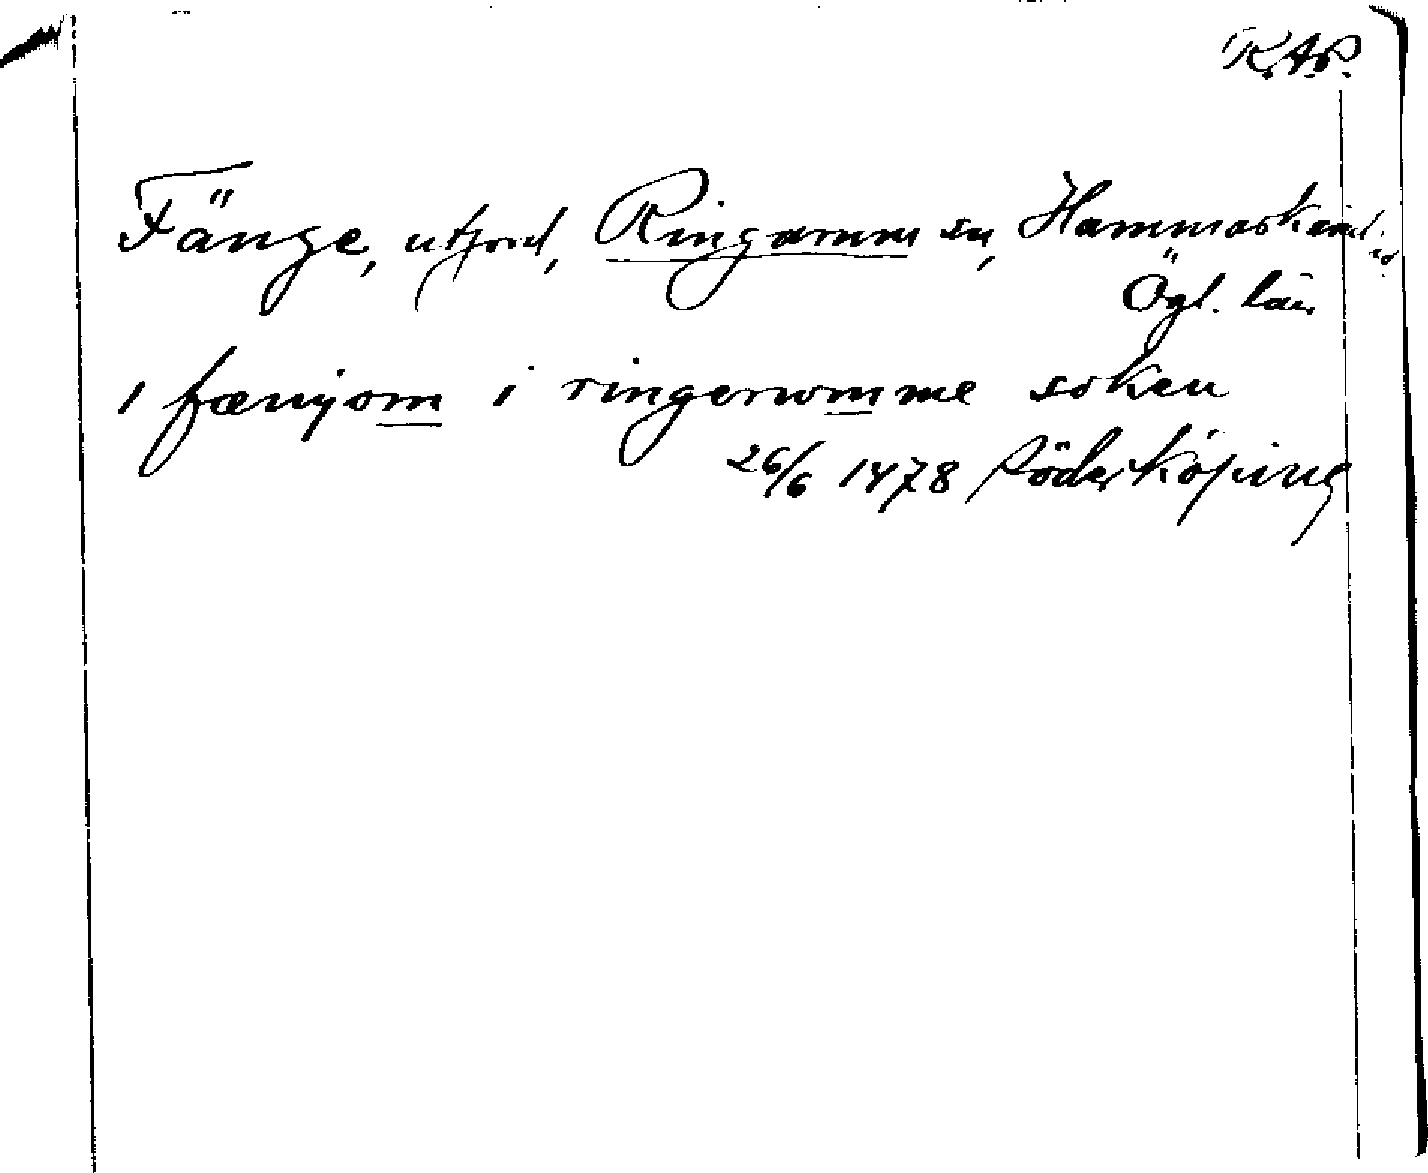 RAP.
Fänge, utjord, Ringarum sn, Hammarkind:s
Ögl. län
i fænyom i ringerwomme soken
26/6 1478 Söderköping